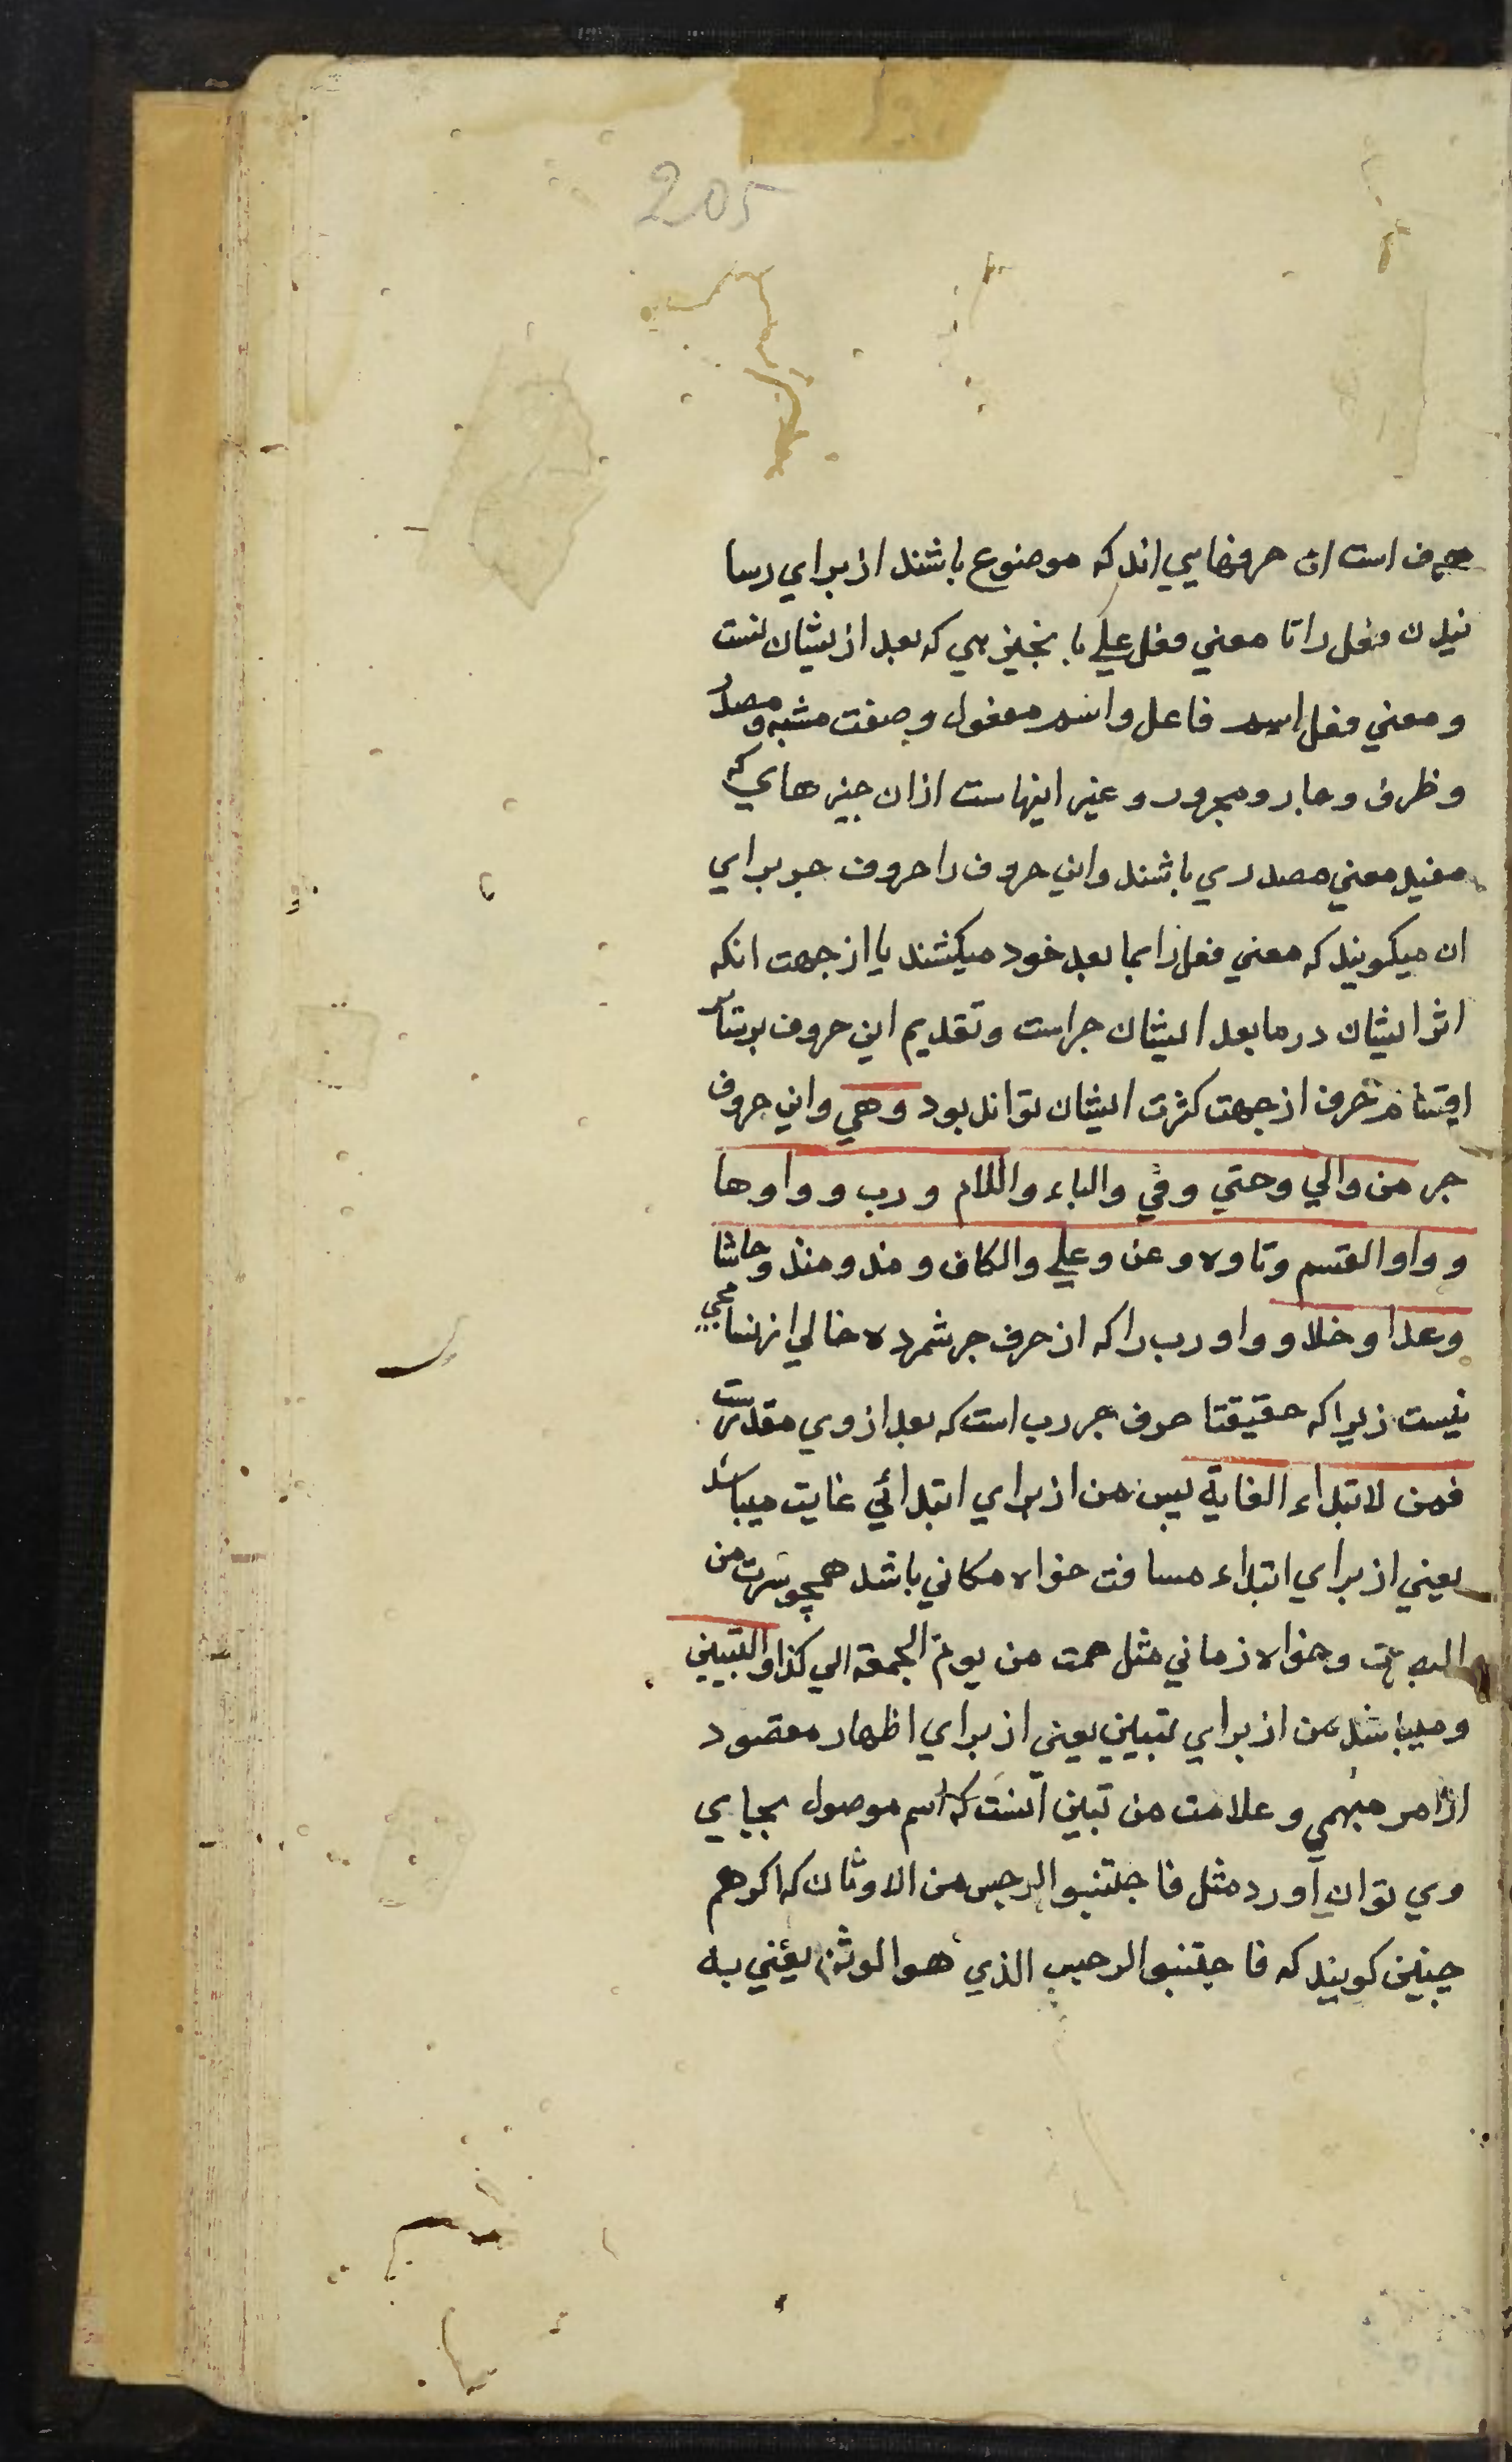 205
حرف است ان حرفهايي اند كه موضوع باشند از براي رسا
نيدن فعل را تا معني فعل علي ما بچيزيي كه بعد از يشان نست
و معني فعل اسم فاعل و اسم مفعول و صفت مشبه و مصدر
و ظرف و جار و مجرور و غير اينهاست ازان چيزهاي كه
مفيد معني مصدري باشند و اين حروف را حروف جر براي
ان ميكويند كه معني فعل را بما بعد خود ميكشند يا از جهت انكه
اثر ايشان در ما بعد ايشان جراست و تقديم اين حروف بر ستا
اقسام حرف از جهت كثرت ايشان تواند بود وهي و اين حروف
جر من والي وحتي وفي والباء واللام ورب وواوها
وواو القسم وتاوه وعن وعلي والكاف ومذ ومنذ وحاشا
وعدا وخلا وواو رب را كه از حرف جر شمرده خالي از تسامحي
نيست زيرا كه حقيقتا حرف جر رب است كه بعد از وي مقدرست
فمن لابتداء الغاية پس من از براي ابتدائي غايت ميباشد
يعني از براي ابتداء مسافت خواه مكاني باشد همچو سرت من
البصرة وخواه زماني مثل صمت من يوم الجمعة الي كذا والتبيين
وميباشد من از براي تبيين يعني از براي اظهار مقصود
از امر مبهمي و علامت من تبين آنست كه اسم موصول بجاي
وي توان آورد مثل فاجتنبوا الرجس من الاوثان كه اكر هم
چنين كويند كه فاجتنبوا الرجس الذي هو الوثن يعني به